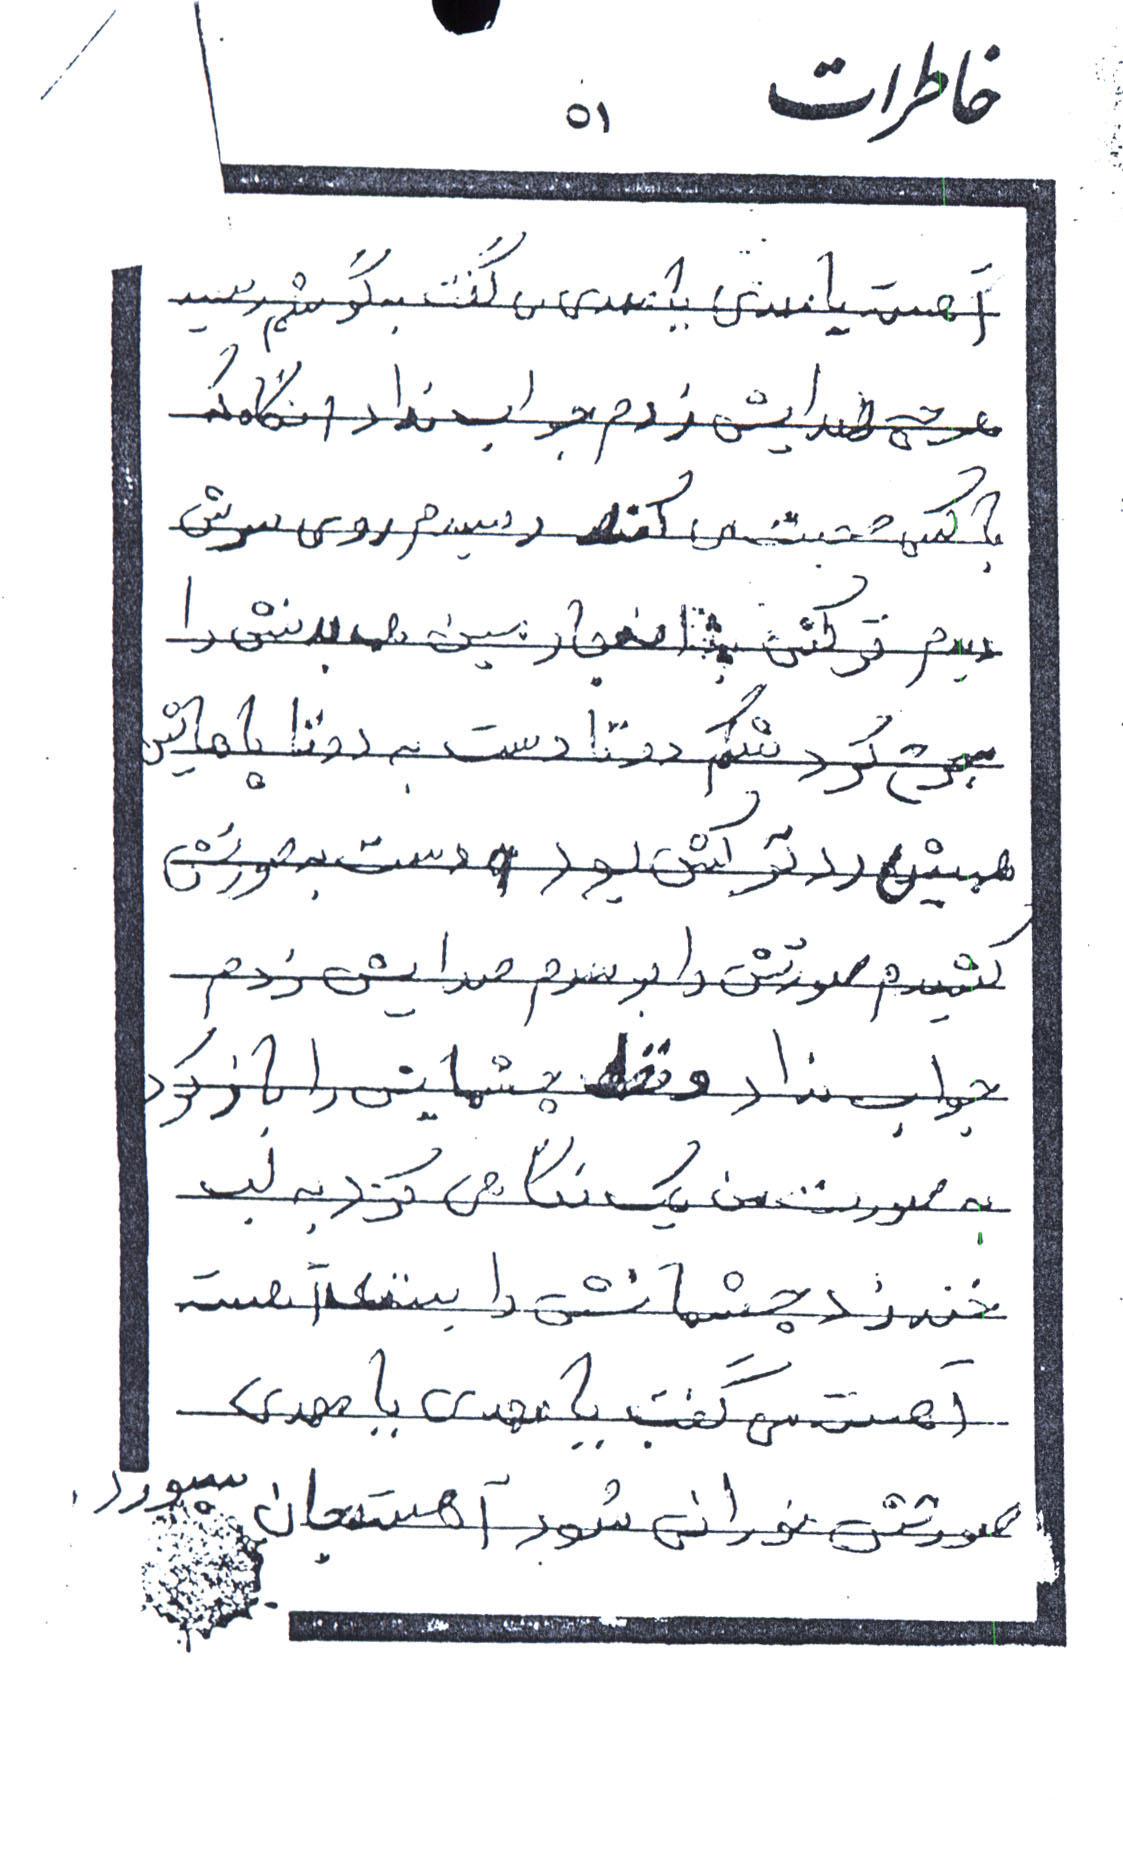 خاطرات
۵۱
آهسته یا مهدی یا مهدی می گفت به گوشم رسید
هرچه صدایش زدم جواب نداد انگار که
با کسی صحبت می کند رسیدم روی سرش
دیدم ترکش انفجار مین همه بدنش را
مجروح کرد شکم دوتا دست به دوتا پاهایش
همیش رد ترکش بود دست به صورتش
کشیدم صورتش را بوسیدم صدایش زدم
جواب نداد وقتیکه چشمایش را باز کرد
به صورت من یک نگاهی کرد به لب
خند زد چشمانش را بست آهسته
آهسته می گفت یا مهدی یا مهدی
صورتش نورانی شود آهسته جان سپرد